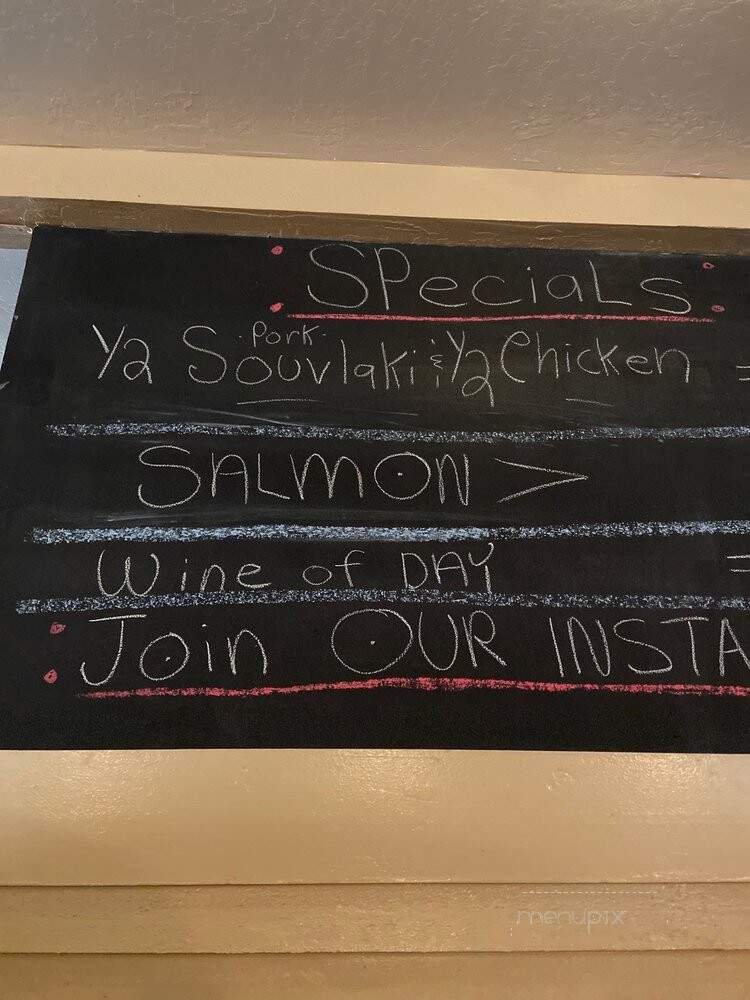 SPeciaLs
Pork
1/2 Souvlaki & 1/2 Chicken =
SALMON >
Wine of DAY =
Join OUR INSTA
menupix